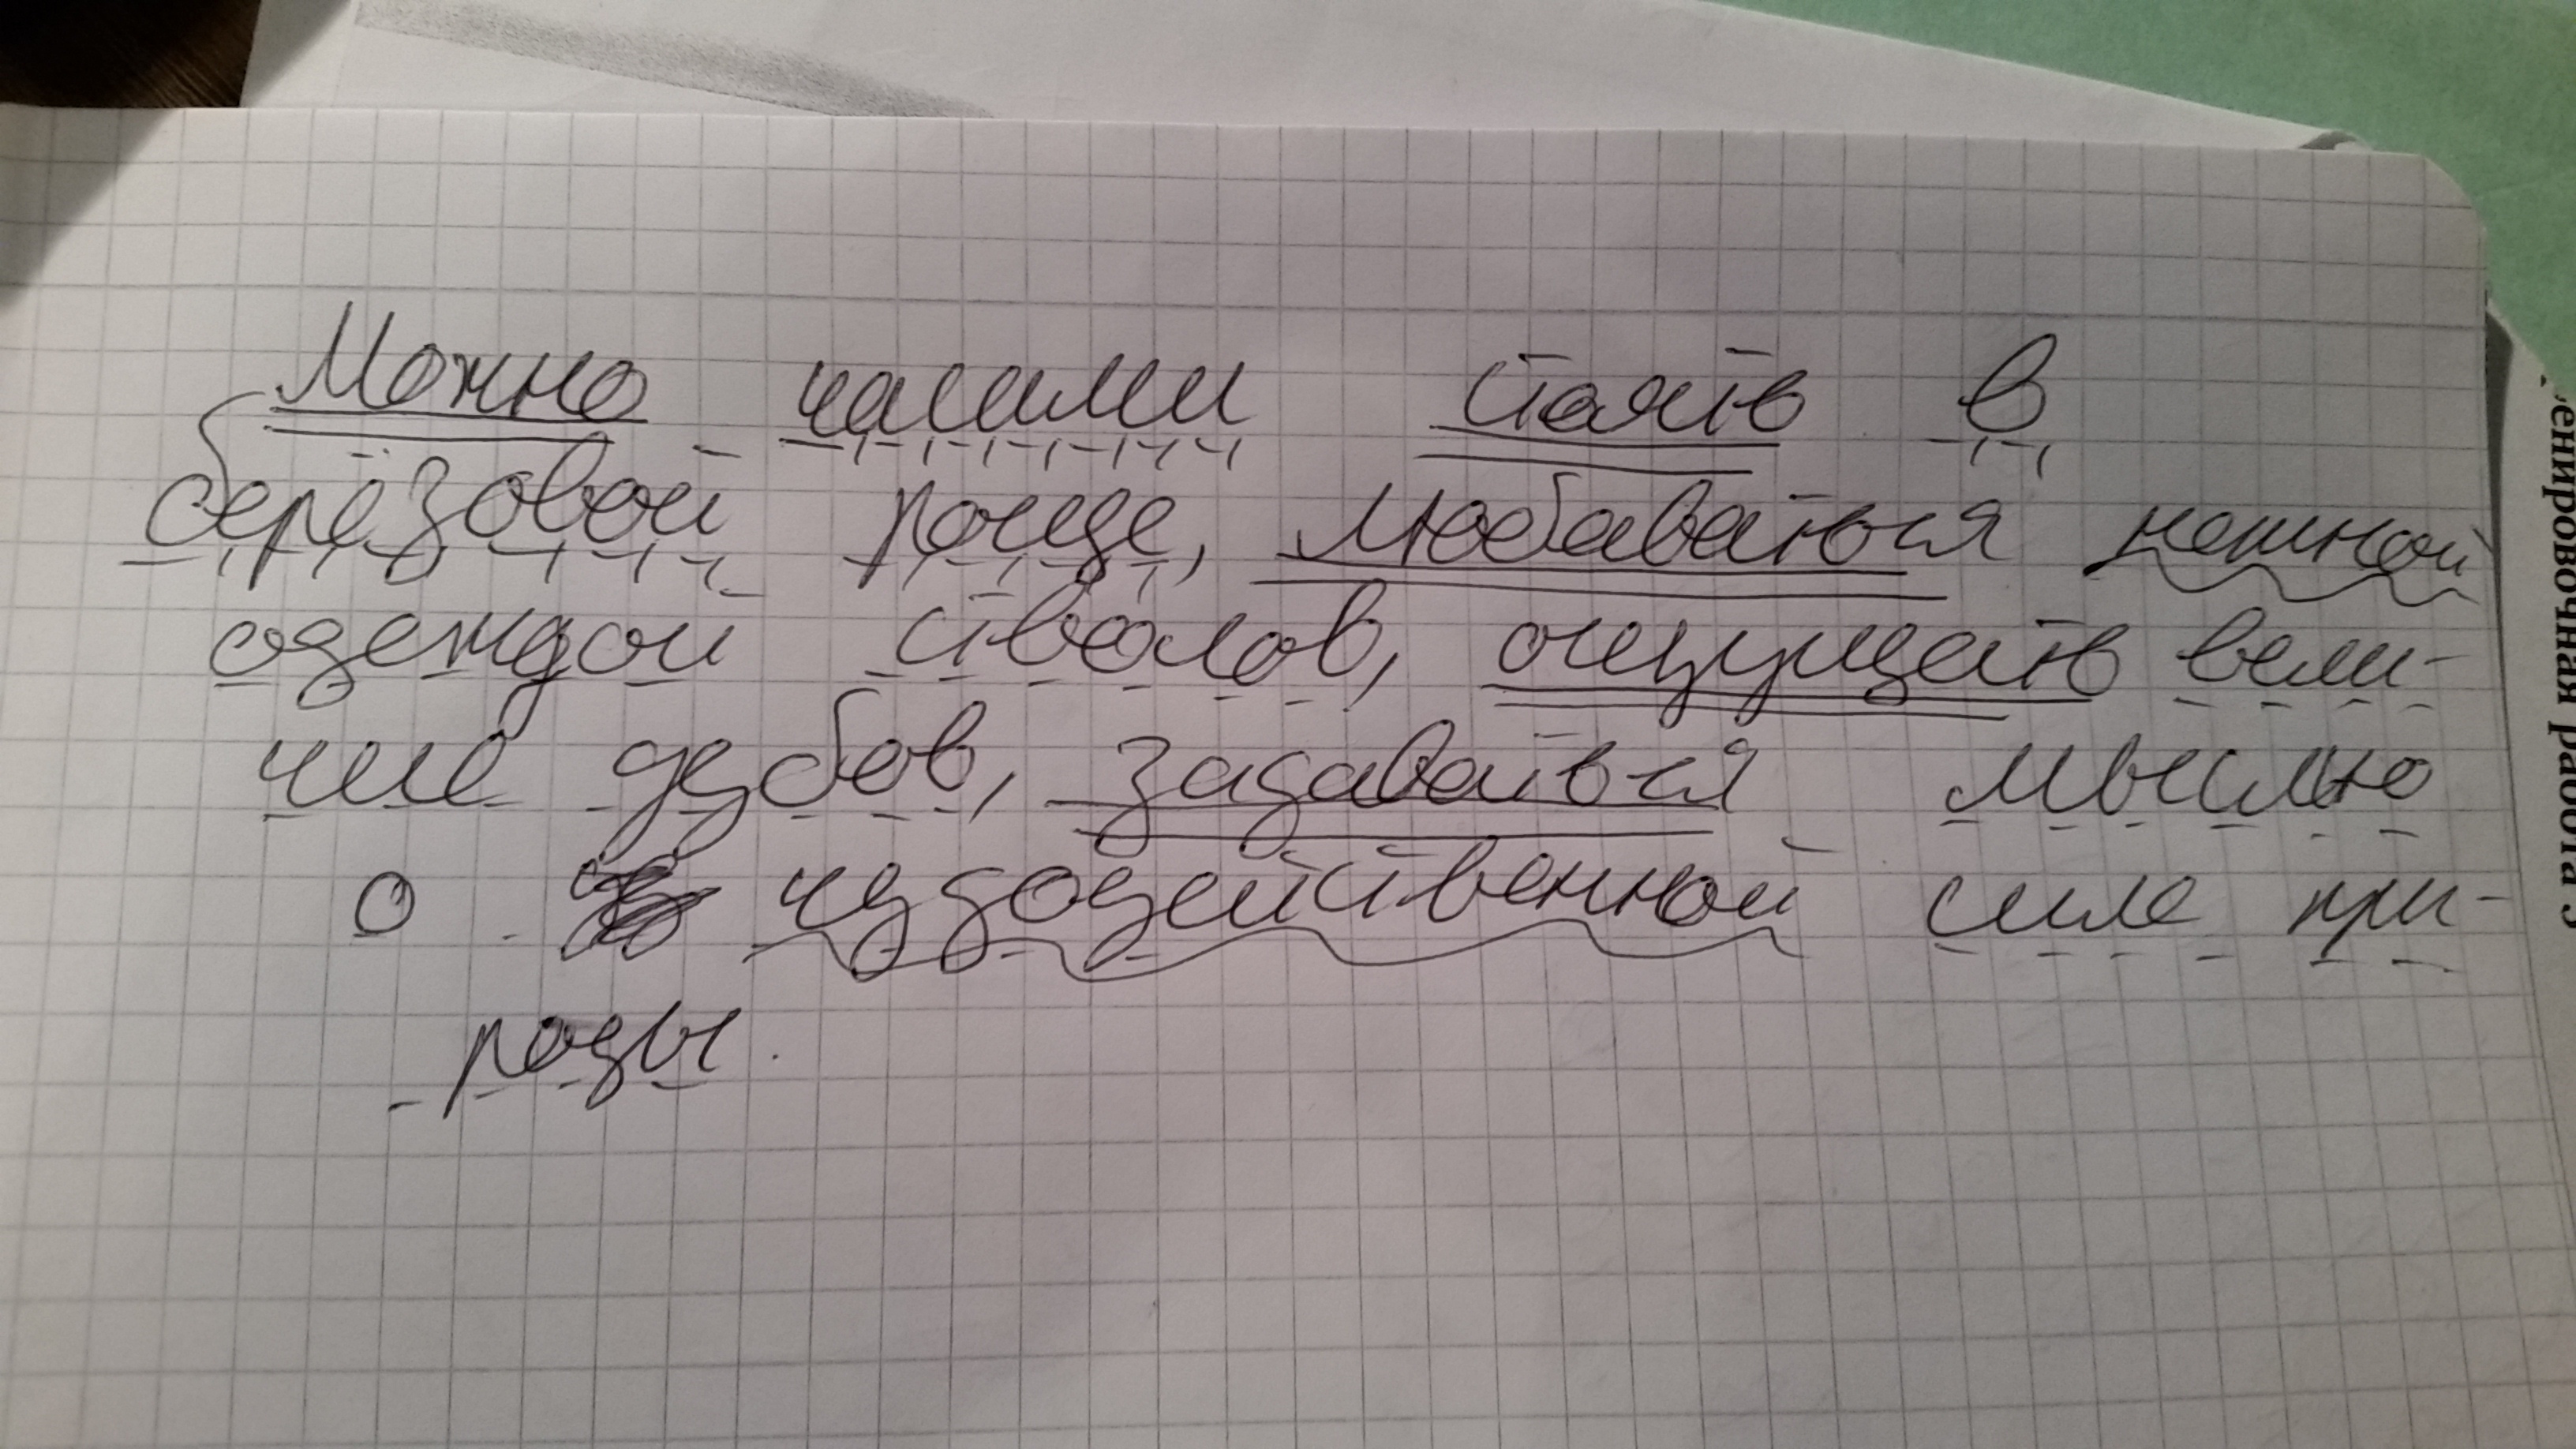 Можно часами стоять в
берёзовой роще, любаваться нежной
одеждой стволов, ощущать вели-
чие дубов, задаваться мыслю
о чудодейственной силе при-
роды.
енировочная работа 3